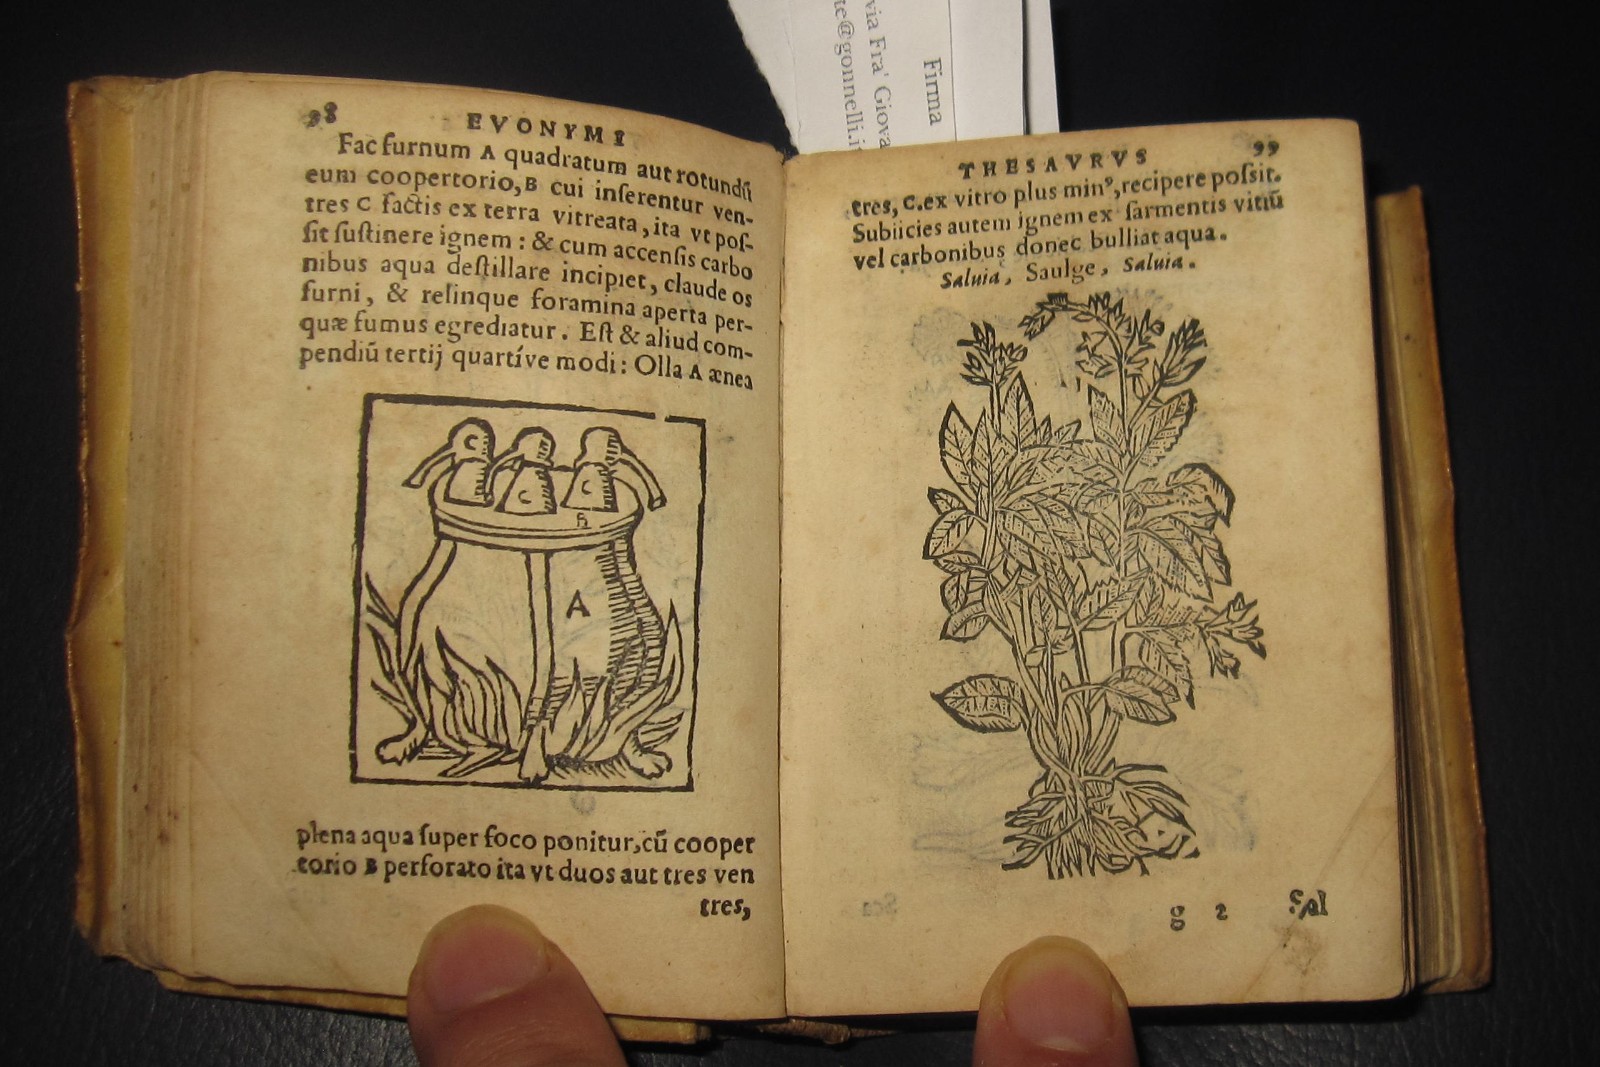 98
EVONYMI
Fac furnum A quadratum aut rotundū
eum coopertorio, B cui inſerentur ven-
tres C factis ex terra vitreata, ita vt poſ-
ſit ſuſtinere ignem : & cum accenſis carbo
nibus aqua deſtillare incipiet, claude os
furni, & relinque foramina aperta per-
quæ fumus egrediatur. Eſt & aliud com-
pendiū tertij quartíve modi : Olla A ænea
C
C
C
B
A
plena aqua ſuper foco ponitur, cū cooper
torio B perforato ita vt duos aut tres ven
tres,
THESAVRVS
99
tres, C. ex vitro plus minꝰ, recipere poſsit.
Subiicies autem ignem ex ſarmentis vitiū
vel carbonibus donec bulliat aqua.
Saluia, Saulge, Saluia.
g 2
Firma
via Fra' Giova
te@gonnelli.it